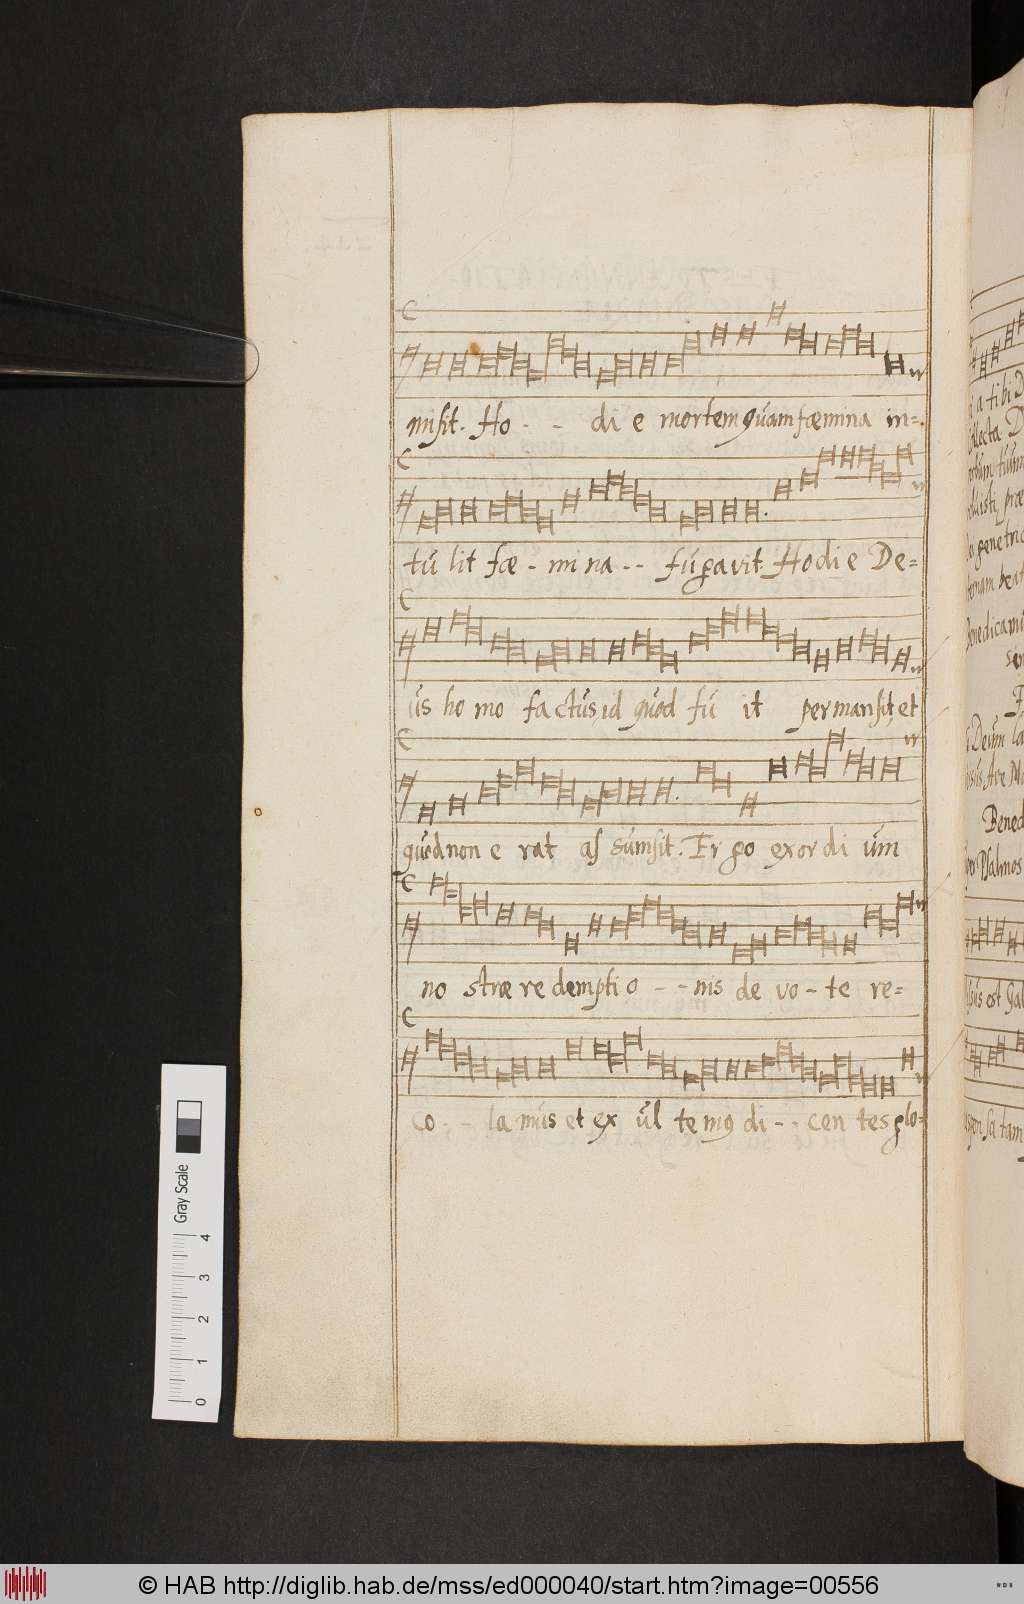 misit. Ho - - di e mortem quam fœmina in=
tu lit fœ - mi na - - fugavit. Hodi e De=
us ho mo factus, id quod fu it permansit, et
quod non e rat as sumsit. Er go exordi um
no stræ re dempti o - - nis de vo - te re=
co - - la mus et ex ul te mq di - - cen tes glo=
a tibi D
Benedicamu
Deum la
Bened
Psalmos
sus est Ga
Gray Scale
4
3
2
1
0
© HAB http://diglib.hab.de/mss/ed000040/start.htm?image=00556